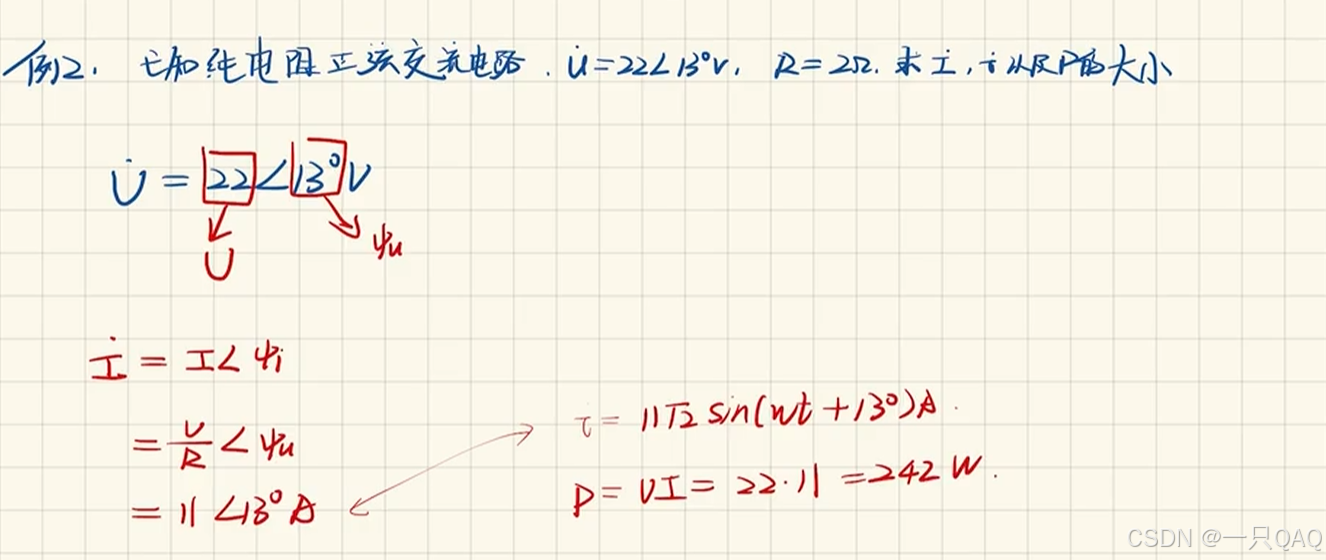 例2. 已知纯电阻正弦交流电路. U̇=22∠13°V, R=2Ω. 求İ, i以及P的大小
U̇ = 22∠13°V
U
ψu
İ = I∠ψi
= U/R ∠ψu
= 11∠13°A
i = 11√2 sin(wt+13°)A.
P = UI = 22·11 = 242 W.
CSDN @一只QAQ